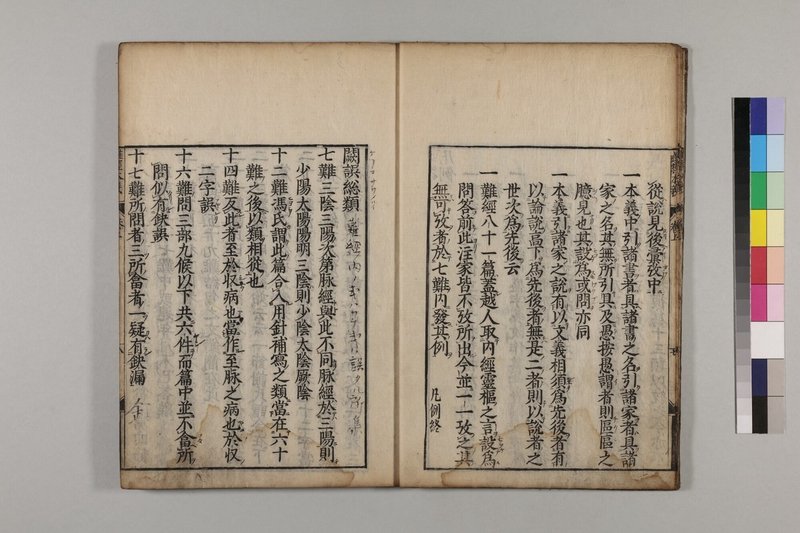 從說見後彙攷中
一本義中引諸書者具諸書之名引諸家者具諸
家之名其無所引具及愚按愚謂者則區區之
臆見也其設為或問亦同
一本義引諸家之說有以文義相須為先後者有
以論說高下為先後者無是二者則以說者之
世次為先後云
一難經八十一篇蓋越人取內經靈樞之言設為
問答前此注家皆不攷所出今並一一攷之其
無可攷者於七難內發其例
凡例終
闕誤總類
七難三陰三陽次第脉經與此不同脉經於三陽則
少陽太陽陽明三陰則少陰太陰厥陰
十二難馮氏謂此篇合入用針補寫之類當在六十
難之後以類相從也
十四難反此者至於収病也當作至脉之病也於収
二字誤
十六難問三部九候以下共六件而篇中並不畣所
問似有缺誤
十七難所問者三所畣者一疑有缺漏